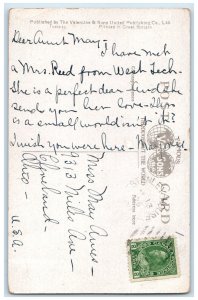 Published by The Valentine & Sons United Publishing Co., Ltd
Printed in Great Britain
Dear Aunt May,
I have met
a Mrs. Reed from West Tech.
She is a perfect dear and
send you her love
is a small world isn't it
I wish you were here - Marjorie
Miss May Ames -
9313 Miles Ave -
Cleveland -
Ohio -
U.S.A.
CARD